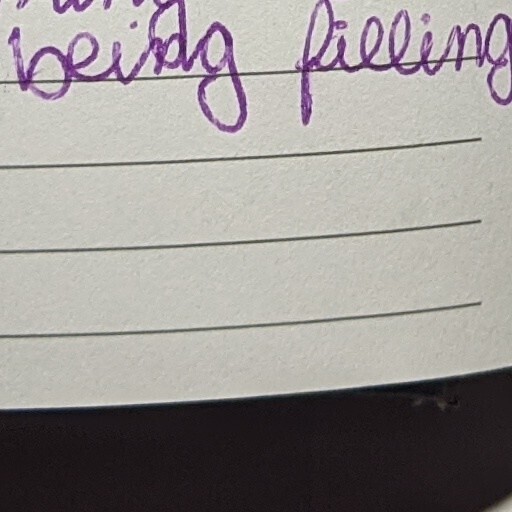 being filling